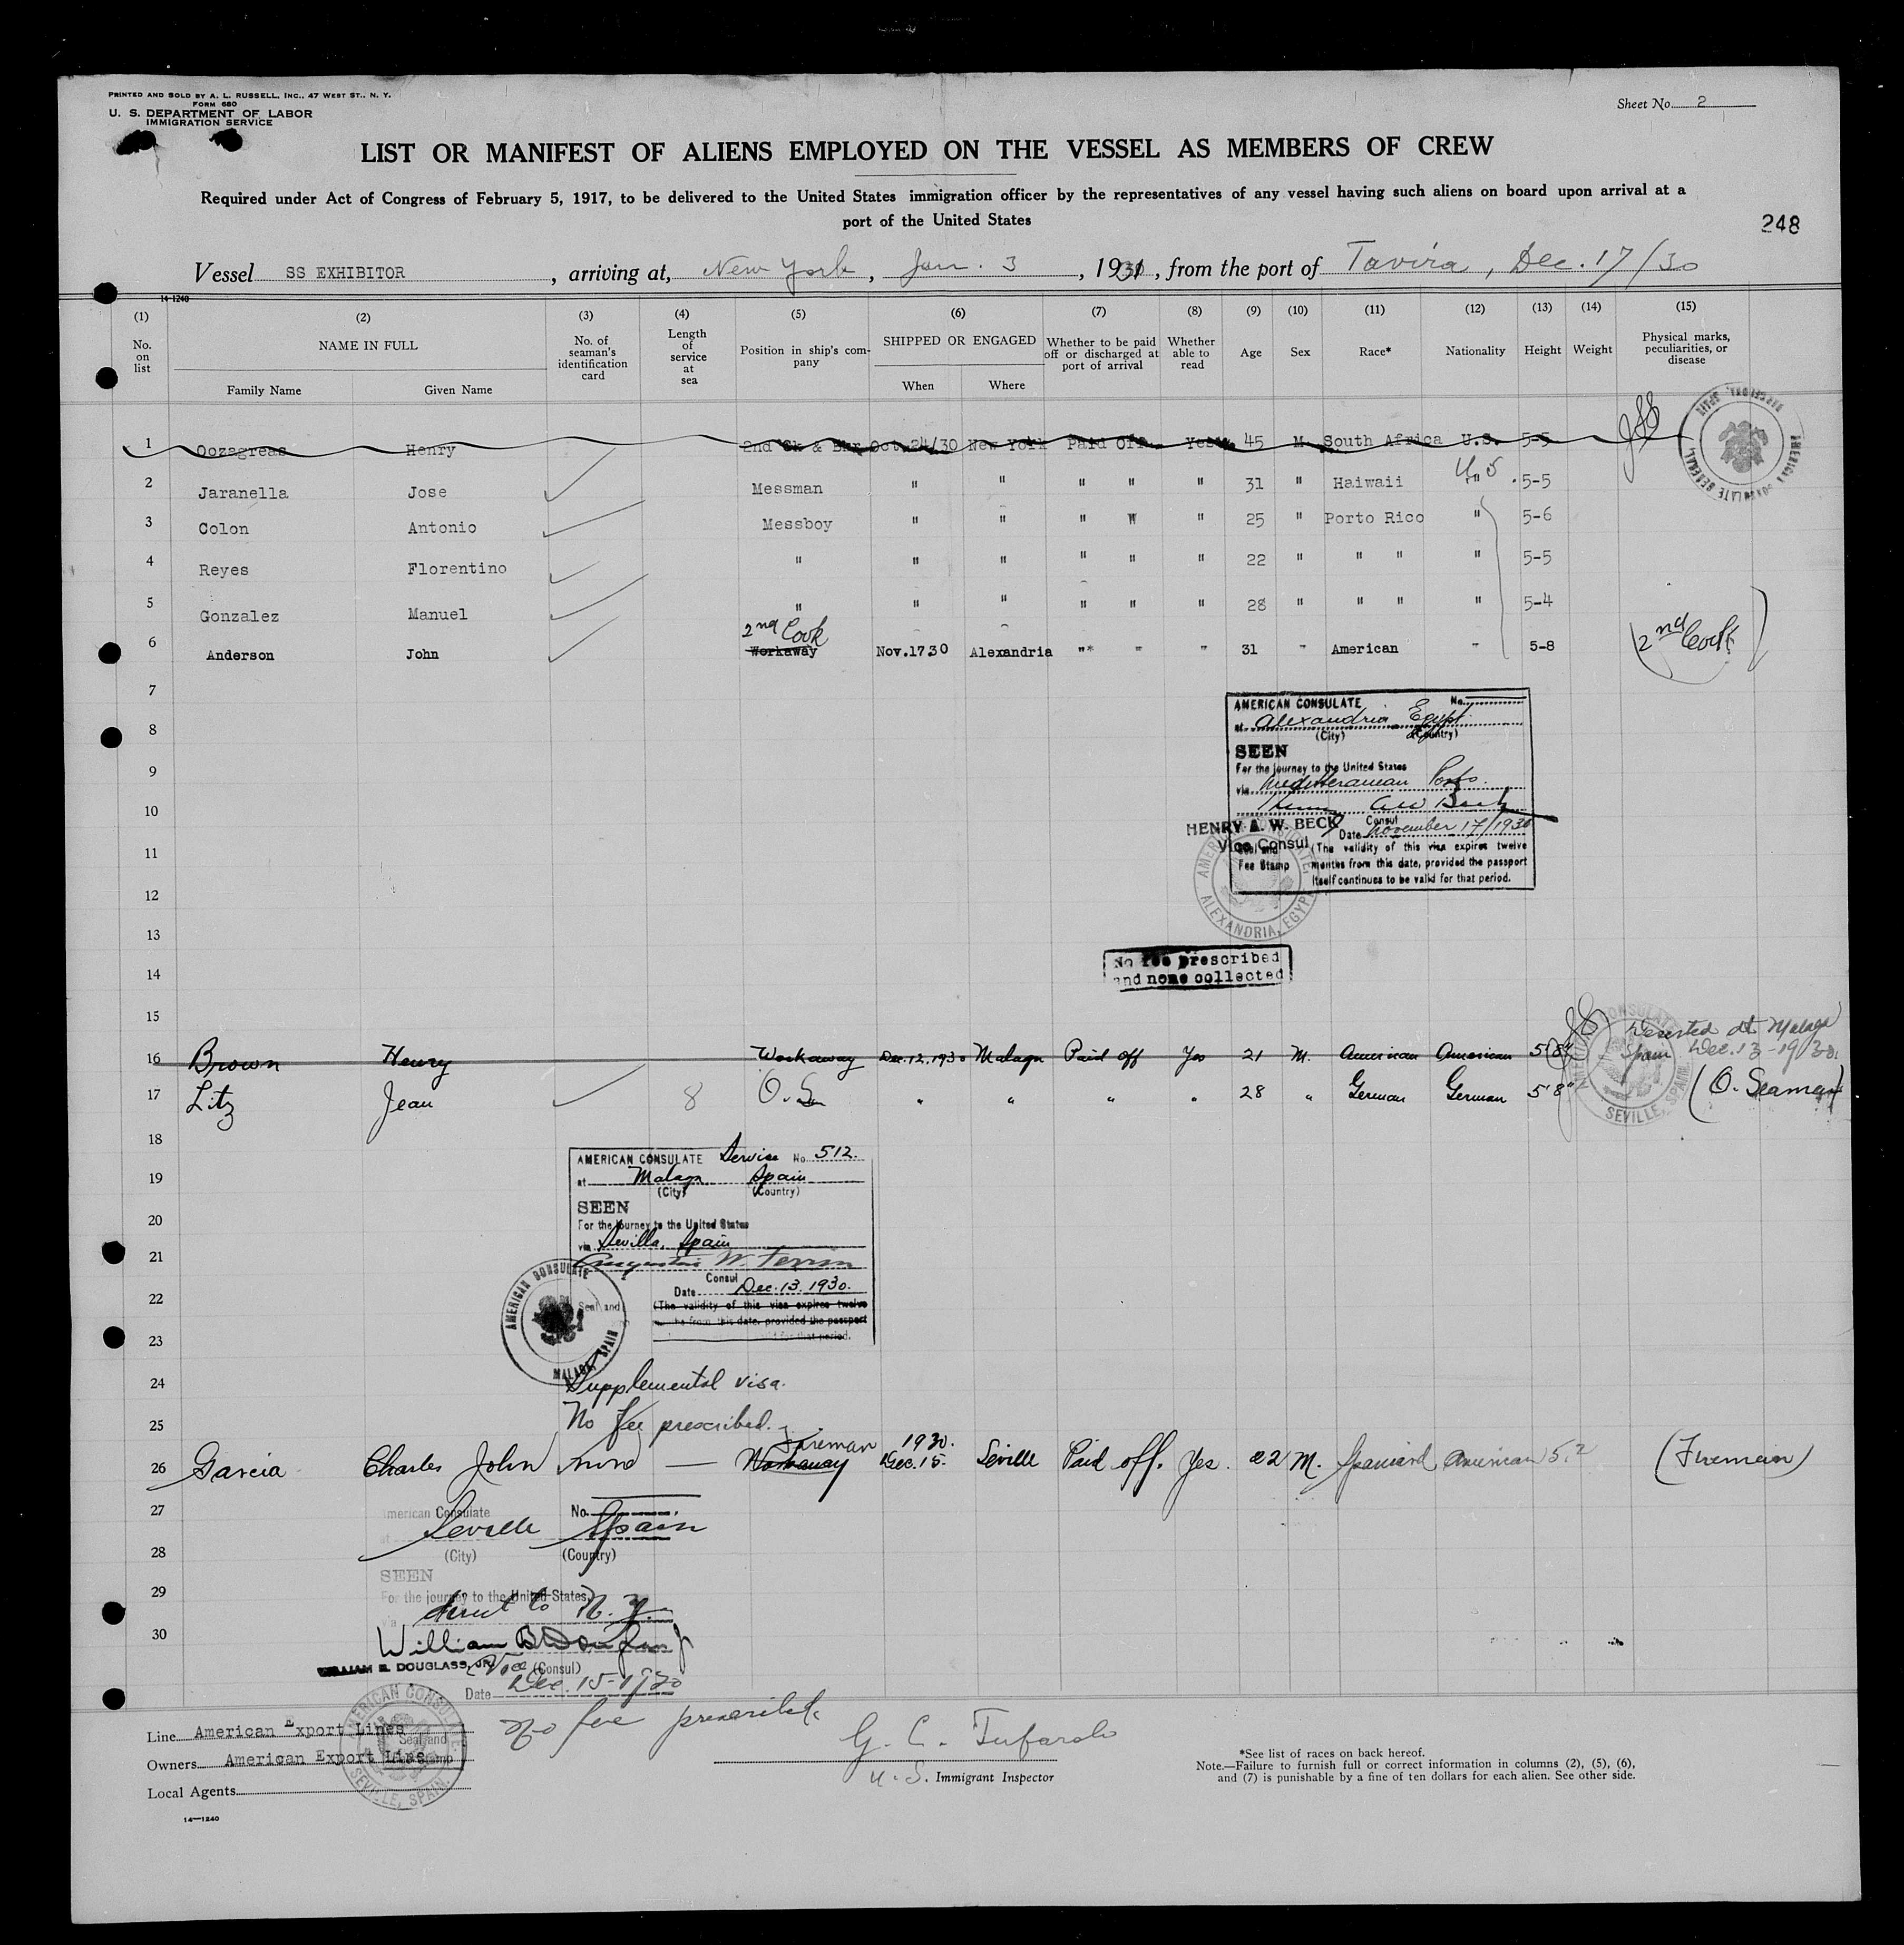 PRINTED AND SOLD BY A. L. RUSSELL, INC., 47 WEST ST., N. Y.
FORM 680
U. S. DEPARTMENT OF LABOR
IMMIGRATION SERVICE
Sheet No. 2
LIST OR MANIFEST OF ALIENS EMPLOYED ON THE VESSEL AS MEMBERS OF CREW
Required under Act of Congress of February 5, 1917, to be delivered to the United States immigration officer by the representatives of any vessel having such aliens on board upon arrival at a
port of the United States
248
Vessel SS EXHIBITOR, arriving at, New York, Jan. 3, 1931, from the port of Tavira, Dec. 17/30
14-1240
(1) (2) (3) (4) (5) (6) (7) (8) (9) (10) (11) (12) (13) (14) (15)
No. on list
NAME IN FULL
Family Name Given Name
No. of seaman's identification card
Length of service at sea
Position in ship's company
SHIPPED OR ENGAGED
When Where
Whether to be paid off or discharged at port of arrival
Whether able to read
Age Sex Race* Nationality Height Weight
Physical marks, peculiarities, or disease
1 Oozagreas Henry 2nd Ck & Bkr Oct.24/30 New York Paid Off Yes 45 M South Africa U.S. 5-5
2 Jaranella Jose Messman " " " " " 31 " Haiwaii U.S. 5-5
3 Colon Antonio Messboy " " " " " 25 " Porto Rico " 5-6
4 Reyes Florentino " " " " " " 22 " " " " 5-5
5 Gonzalez Manuel " " " " " " 28 " " " " 5-4
2nd Cook
6 Anderson John Workaway Nov.17.30 Alexandria " " " 31 " American " 5-8 (2nd Cook)
7
8
9
10
11
12
13
14
15
AMERICAN CONSULATE No.
at Alexandria Egypt
(City) (Country)
SEEN
For the journey to the United States
via Mediterranean Ports.
Henry A W Beck
HENRY A. W. BECK Consul
Vice Consul Date November 17/1930
Seal and Fee Stamp
(The validity of this visa expires twelve
months from this date, provided the passport
itself continues to be valid for that period.
AMERICAN CONSULATE ALEXANDRIA, EGYPT
No fee prescribed
and none collected
Deserted at Malaga
Spain Dec. 13-1930.
16 Brown Henry Workaway Dec. 12, 1930 Malaga Paid off Yes 21 M. American American 5'8"
17 Litz Jean 8 O.S. " " " " 28 " German German 5'8" (O. Seaman)
SEVILLE, SPAIN
18
19
20
21
22
23
24
25
AMERICAN CONSULATE Service No. 512.
at Malaga Spain
(City) (Country)
SEEN
For the journey to the United States
via Sevilla, Spain
Augustin W. Ferrin
Consul
Date Dec. 13. 1930.
Seal and
(The validity of this visa expires twelve
months from this date, provided the passport
for that period.
AMERICAN CONSULATE MALAGA, SPAIN
Supplemental visa.
No fee prescribed.
Fireman 1930.
26 Garcia Charles John — Workaway Dec. 15. Seville Paid off. Yes. 22 M. Spaniard American 5.2 (Fireman)
27
28
29
30
American Consulate No.
at Seville Spain
(City) (Country)
SEEN
For the journey to the United States
via direct to N. Y.
William B Douglass Jr
WILLIAM B. DOUGLASS, JR. Vice (Consul)
Date Dec. 15-1930
No fee prescribed.
AMERICAN CONSULATE SEVILLE, SPAIN
Seal and
Line American Export Lines
Owners American Export Line
Local Agents
G. C. Tufarolo
U. S. Immigrant Inspector
*See list of races on back hereof.
Note.—Failure to furnish full or correct information in columns (2), (5), (6),
and (7) is punishable by a fine of ten dollars for each alien. See other side.
14—1240